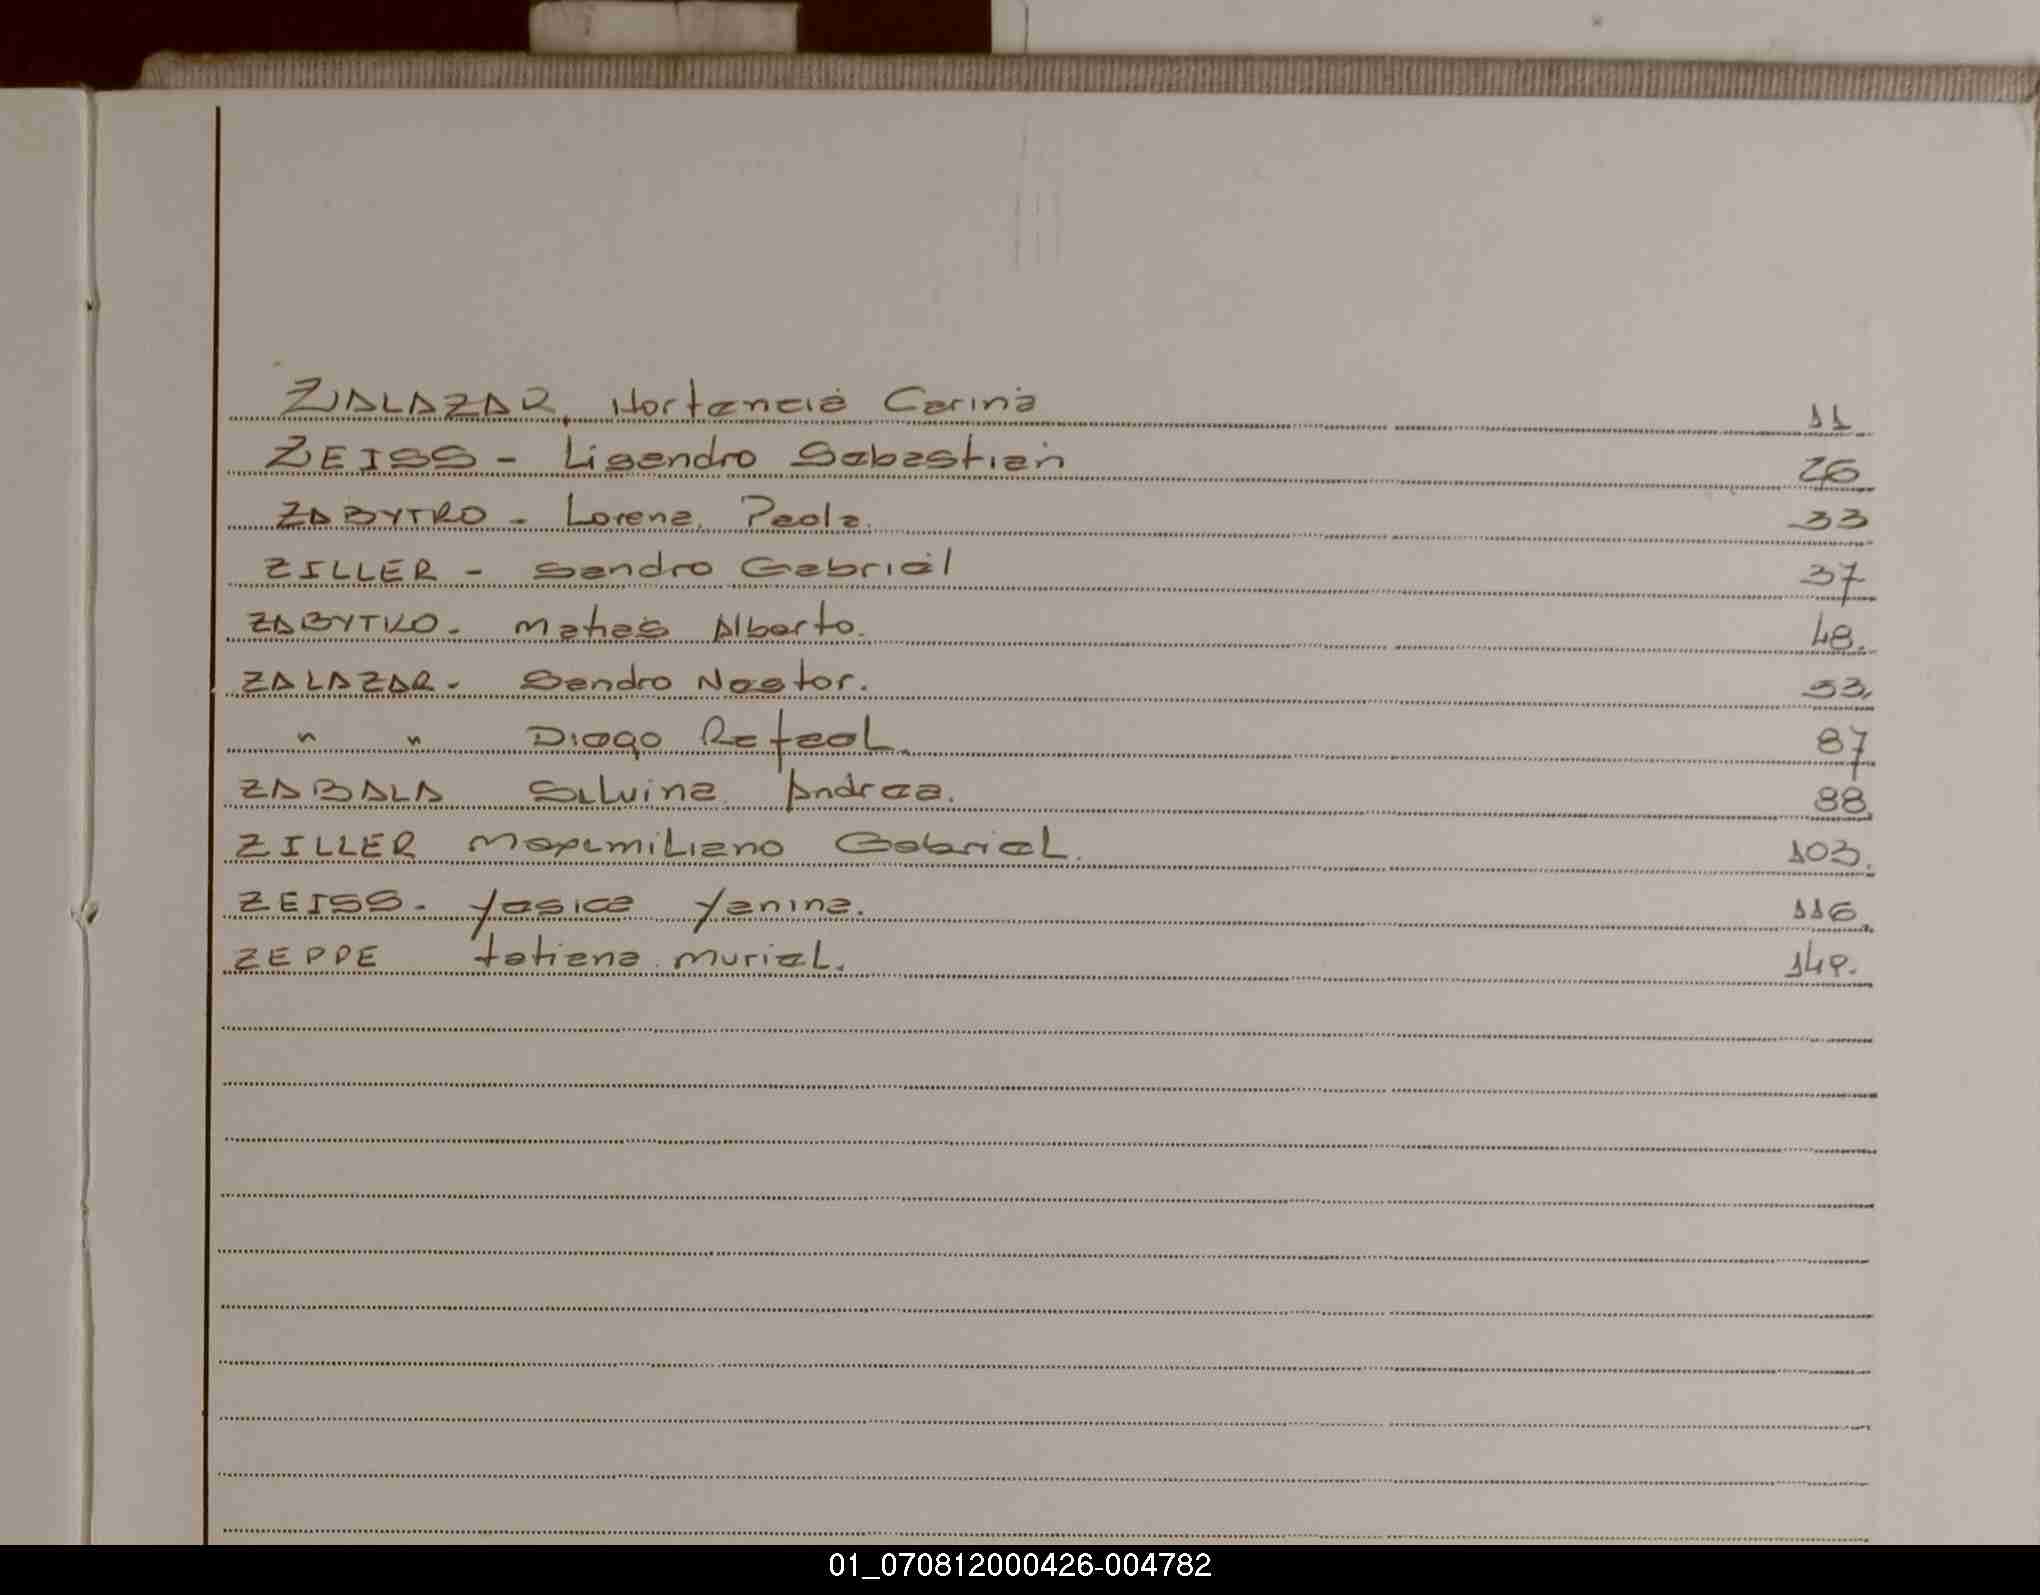 ZALAZAR, Hortencia Carina 11
ZEISS - Lisandro Sebastian 26
ZABYTRO - Lorena Paola. 33
ZILLER - Sandro Gabriel 37
ZABYTKO. Matias Alberto. 48.
ZALAZAR. Sandro Nestor. 53.
" " Diego Rafael. 87
ZABALA Silvina Andrea. 88.
ZILLER Maximiliano Gabriel. 103.
ZEISS. Yesica Yanina. 116.
ZEPPE tatiana muriel. 149.
01_070812000426-004782